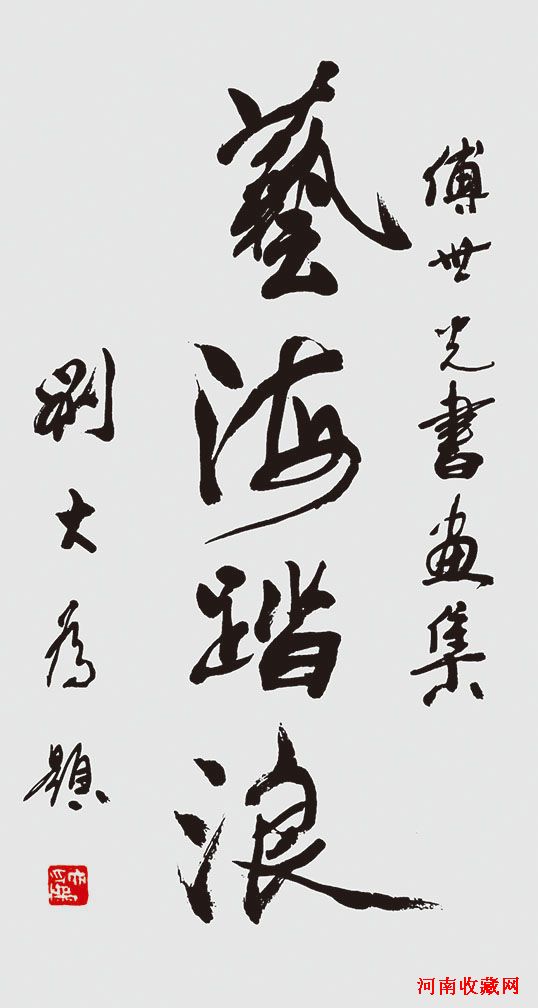 傅世光書畫集
藝海踏浪
劉大为題
河南收藏网